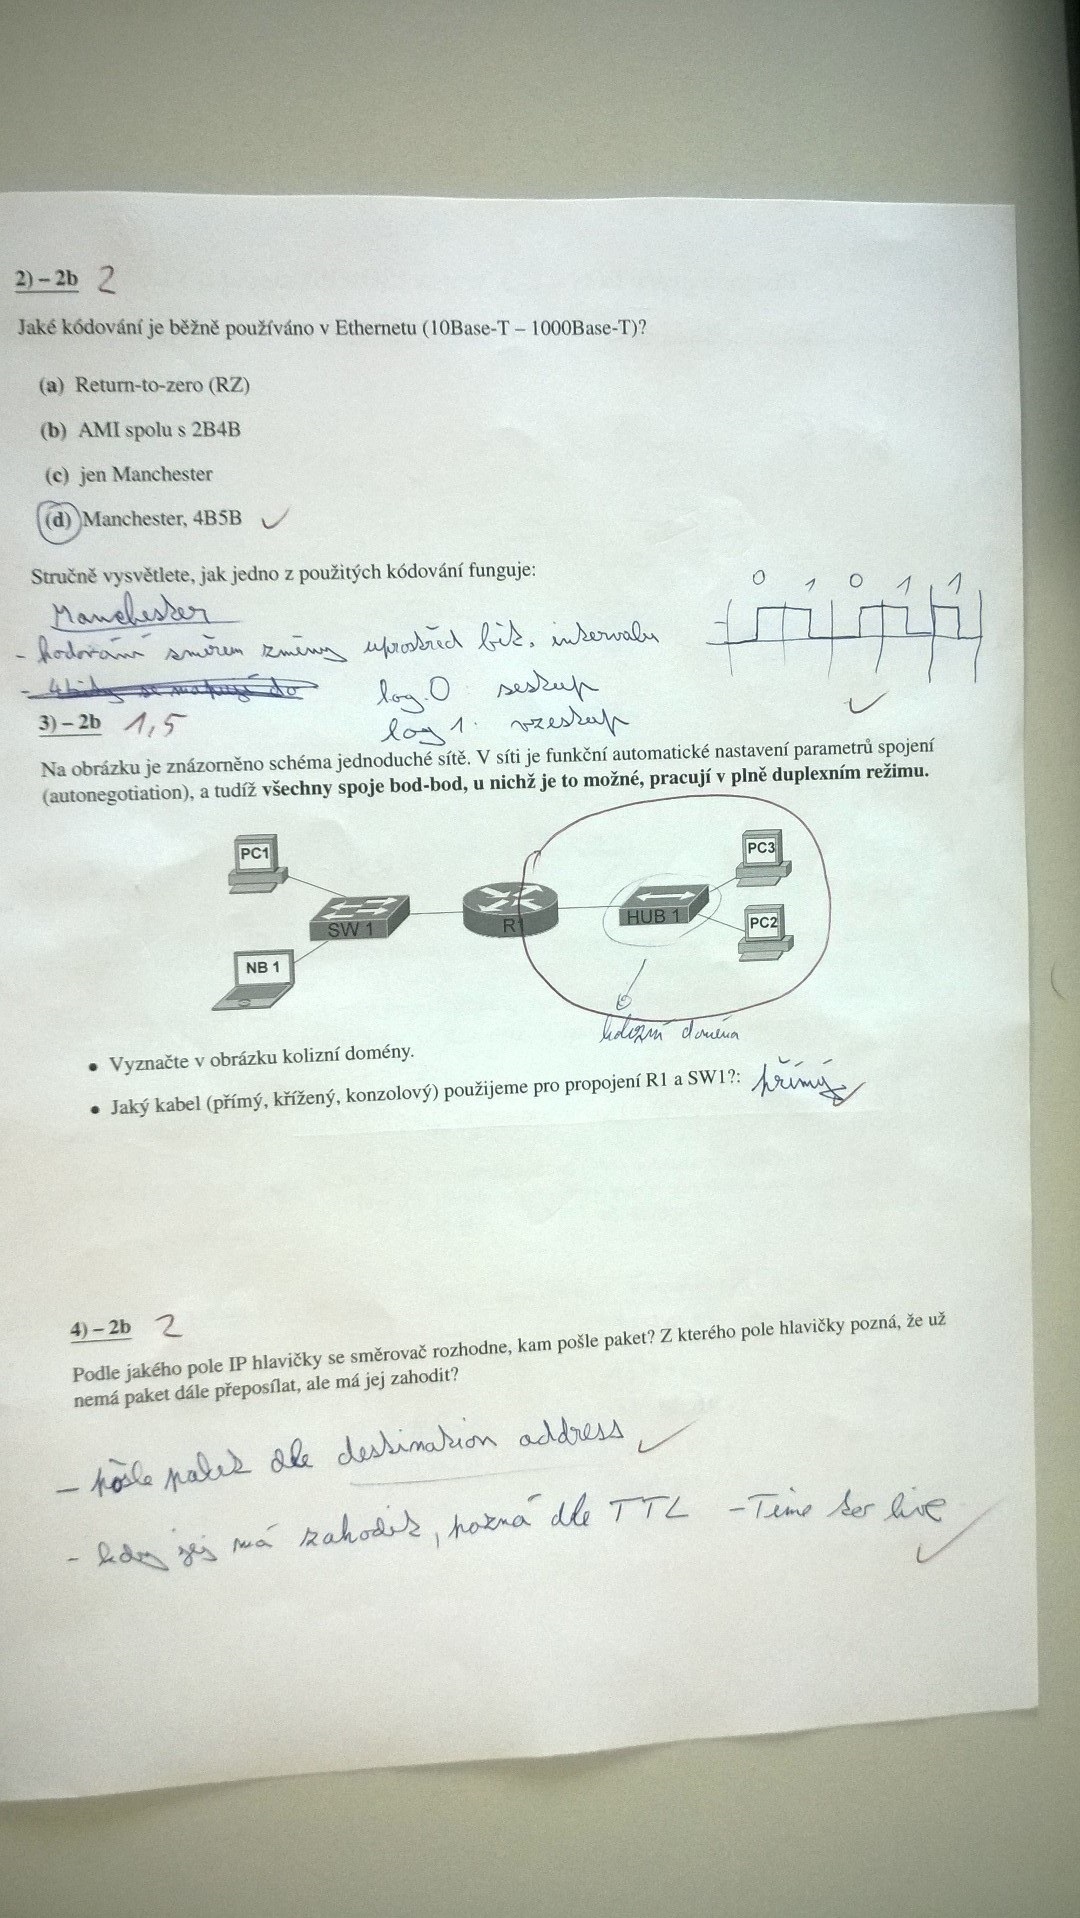 2) – 2b 2
Jaké kódování je běžně používáno v Ethernetu (10Base-T – 1000Base-T)?
(a) Return-to-zero (RZ)
(b) AMI spolu s 2B4B
(c) jen Manchester
(d) Manchester, 4B5B
Stručně vysvětlete, jak jedno z použitých kódování funguje:
0 1 0 1 1
Manchester
- kódování směrem změny uprostřed bit. intervalu
log. 0 sestup
log 1. vzestup
3) – 2b 1,5
Na obrázku je znázorněno schéma jednoduché sítě. V síti je funkční automatické nastavení parametrů spojení
(autonegotiation), a tudíž všechny spoje bod-bod, u nichž je to možné, pracují v plně duplexním režimu.
PC1
PC3
SW 1
R1
HUB 1
PC2
NB 1
kolizní doména
• Vyznačte v obrázku kolizní domény.
• Jaký kabel (přímý, křížený, konzolový) použijeme pro propojení R1 a SW1?: přímý
4) – 2b 2
Podle jakého pole IP hlavičky se směrovač rozhodne, kam pošle paket? Z kterého pole hlavičky pozná, že už
nemá paket dále přeposílat, ale má jej zahodit?
- pošle paket dle destination address
- kdy jej má zahodit, pozná dle TTL - Time ter live